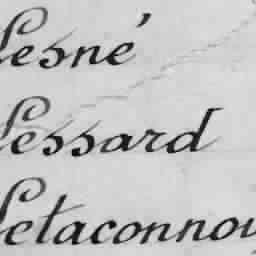 Lesné
Lessard
Letaconnou